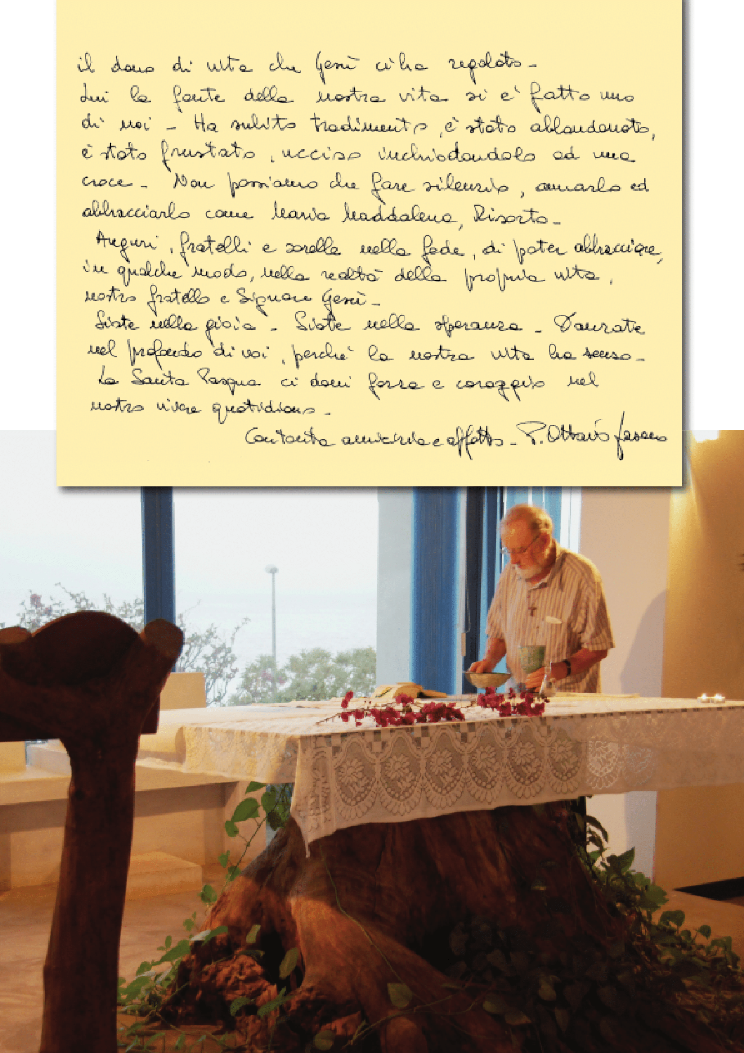 il dono di vita che Gesù ci ha regalato -
Lui la fonte della nostra vita si e' fatto uno
di noi - Ha subito tradimento, e' stato abbandonato,
e' stato frustato, ucciso inchiodandolo ad una
croce - Non possiamo che fare silenzio, amarlo ed
abbracciarlo come Maria Maddalena, Risorto -
Auguri, fratelli e sorelle nella fede, di poter abbracciare,
in qualche modo, nella realtà della propria vita,
nostro fratello e Signore Gesù -
Siate nella gioia - Siate nella speranza - Danzate
nel profondo di voi, perchè la nostra vita ha senso -
La Santa Pasqua ci doni forza e coraggio nel
nostro vivere quotidiano -
Con tanta amicizia e affetto - P. Ottavio Fasano